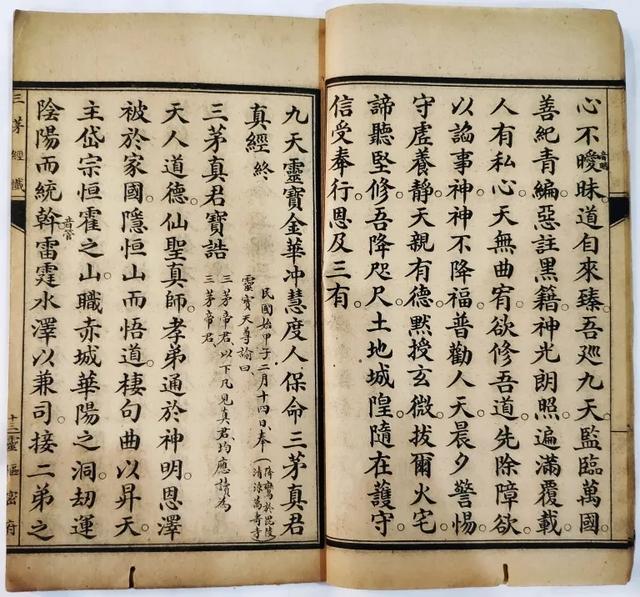 心不曖昧。道自來臻。吾巡九天。監臨萬國。
善紀青編。惡註黑籍。神光朗照。遍滿覆載。
人有私心。天無曲宥。欲修吾道。先除障欲。
以諂事神。神不降福。普勸人天。晨夕警惕。
守虛養靜。天親有德。默授玄微。拔爾火宅。
諦聽堅修。吾降咫尺。土地城隍。隨在護守。
信受奉行。恩及三有。
九天靈寶金華冲慧度人保命三茅真君
真經終
民國始甲子二月十四日奉(降鸞於毘陵清涼萬壽寺
靈寶天尊諭曰
三茅帝君。以下凡見真君均應讀為
三茅帝君
三茅真君寶誥
天人道德。仙聖真師。孝弟通於神明。恩澤
被於家國。隱恒山而悟道。棲句曲以昇天。
主岱宗恒霍之山。職赤城華陽之洞。劫運
陰陽而統幹音管雷霆水澤以兼司。接二弟之
三茅經懺
靈樞密府